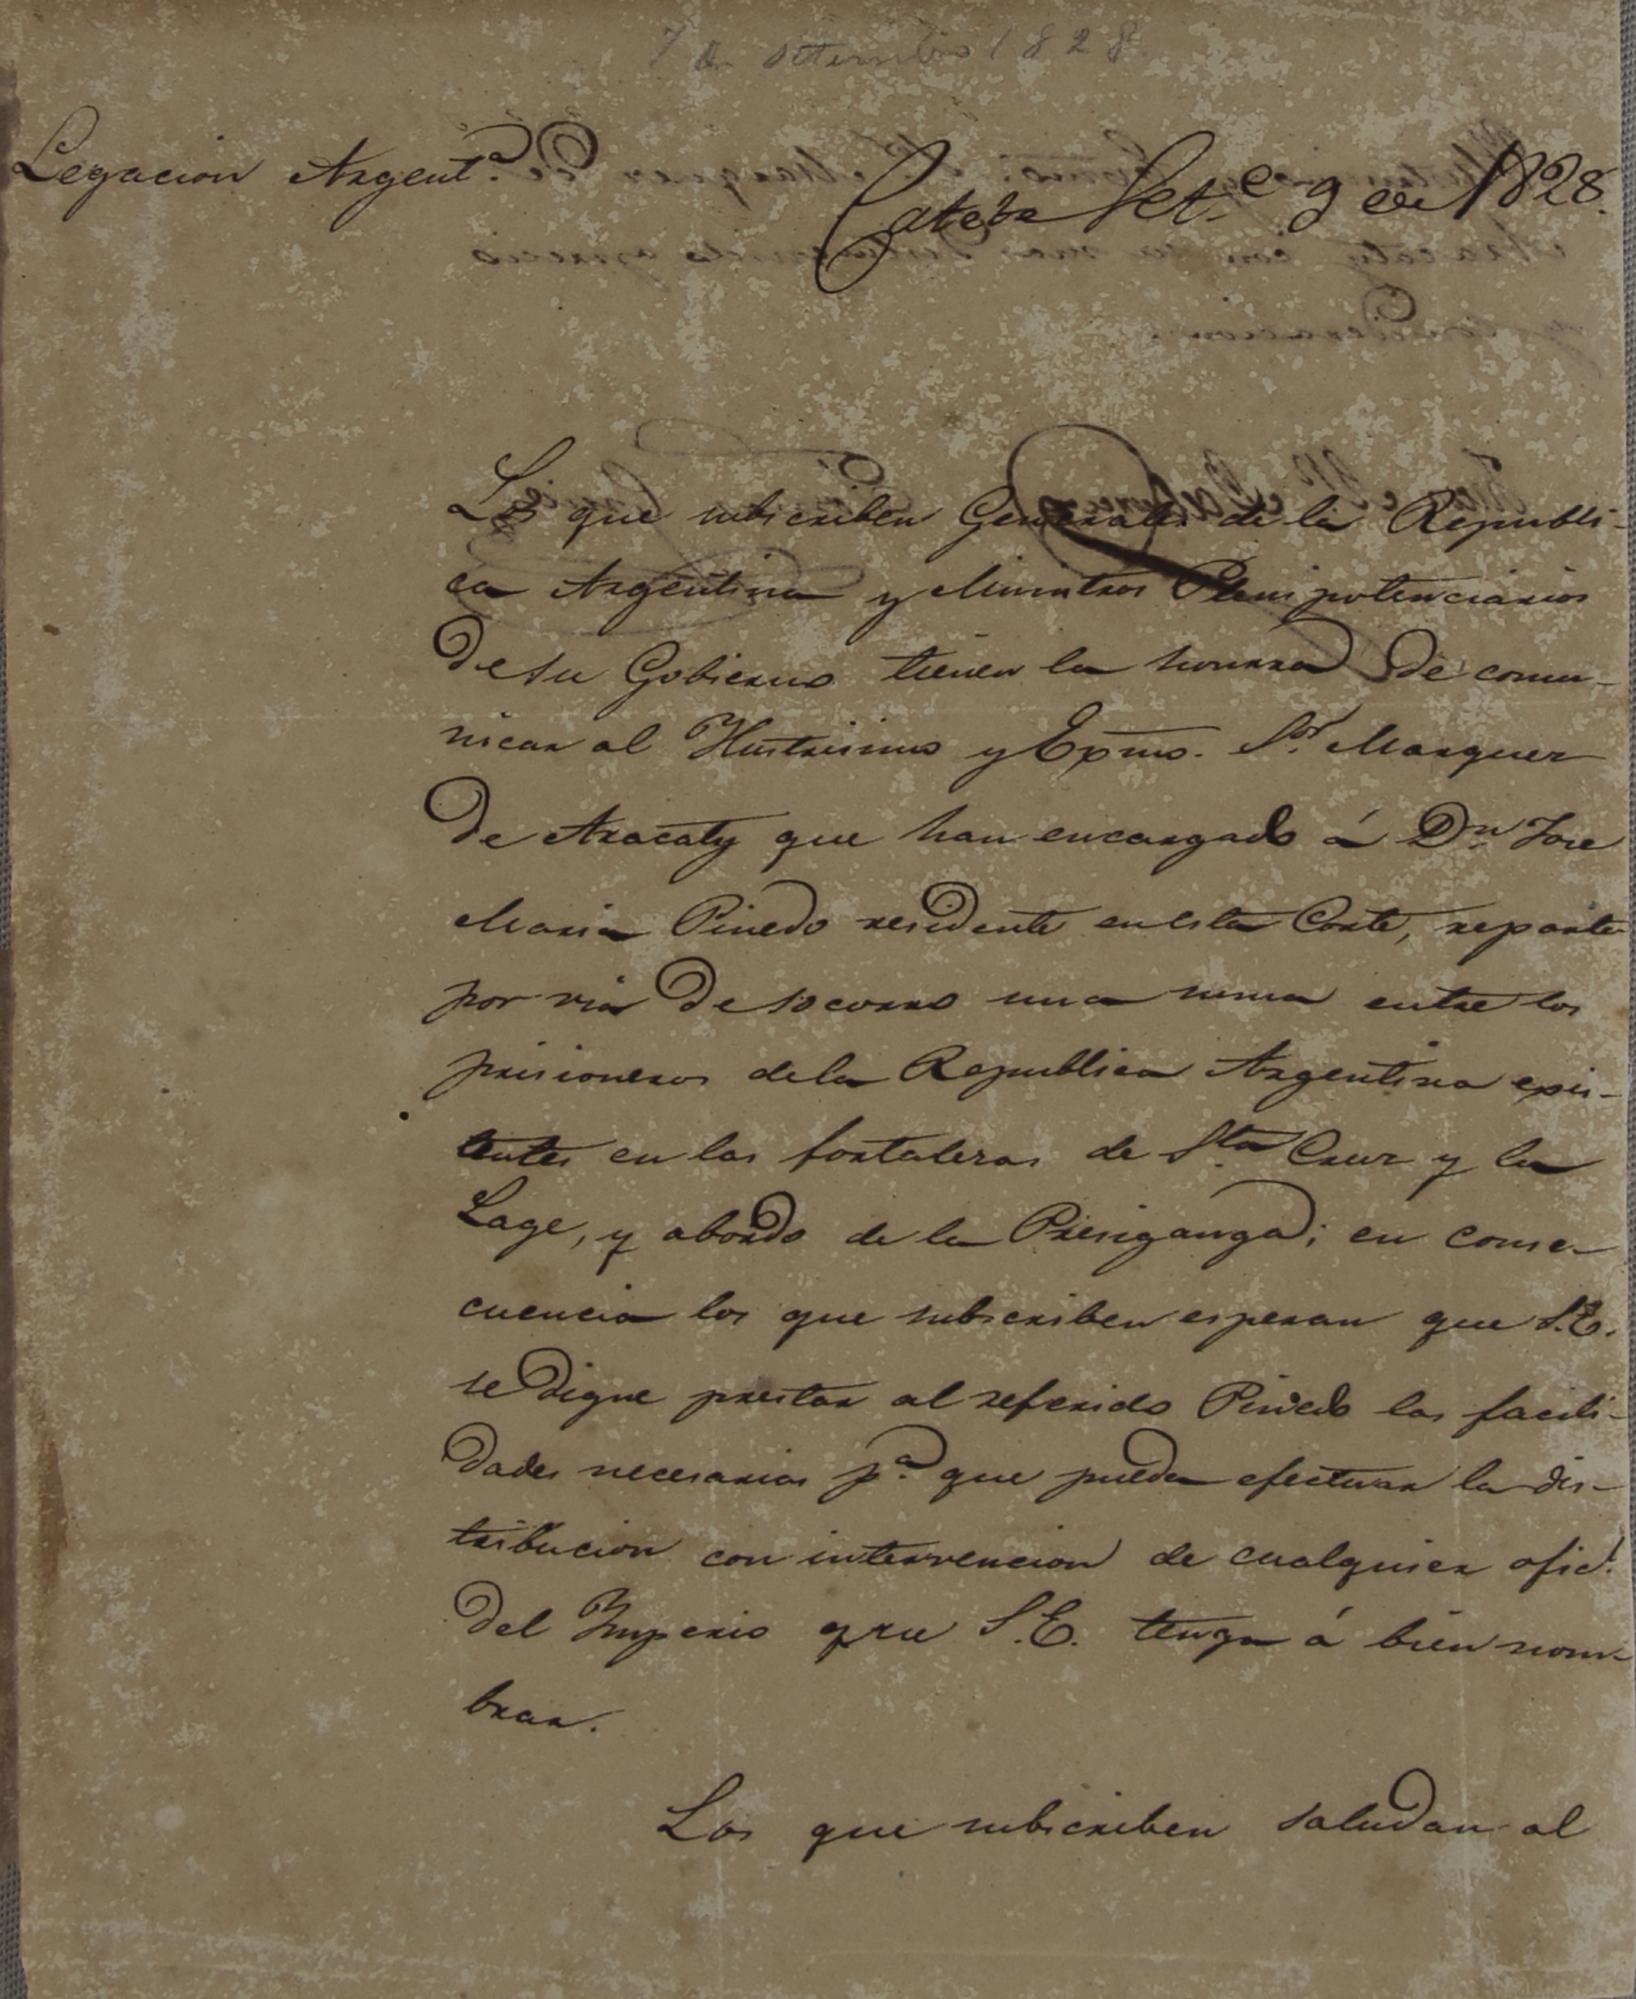 7 de setembro 1828
Legacion Argent.ª
Catete Set.e 9 de 1828.
Los que subscriben Generales de la Republi-
ca Argentina y Ministros Plenipotenciarios
de su Gobierno tienen la honrra de comu-
nicar al Ilustrisimo y Exmo. S.or Marquez
de Aracaty que han encargado á D.n Jose
Maria Pinedo residente en esta Corte, reparta
por via de socorro una suma entre los
prisioneros de la Republica Argentina exis-
tentes en las fortalezas de S.ta Cruz y la
Lage, y abordo de la Presiganga; en conse-
cuencia los que subscriben esperan que S.E.
se digne prestar al referido Pinedo las facili-
dades necesarias p.ª que pueda efectuar la dis-
tribucion con intervencion de cualquier ofic.l
del Imperio que S.E. tenga á bien nom-
brar.
Los que subscriben saludan al